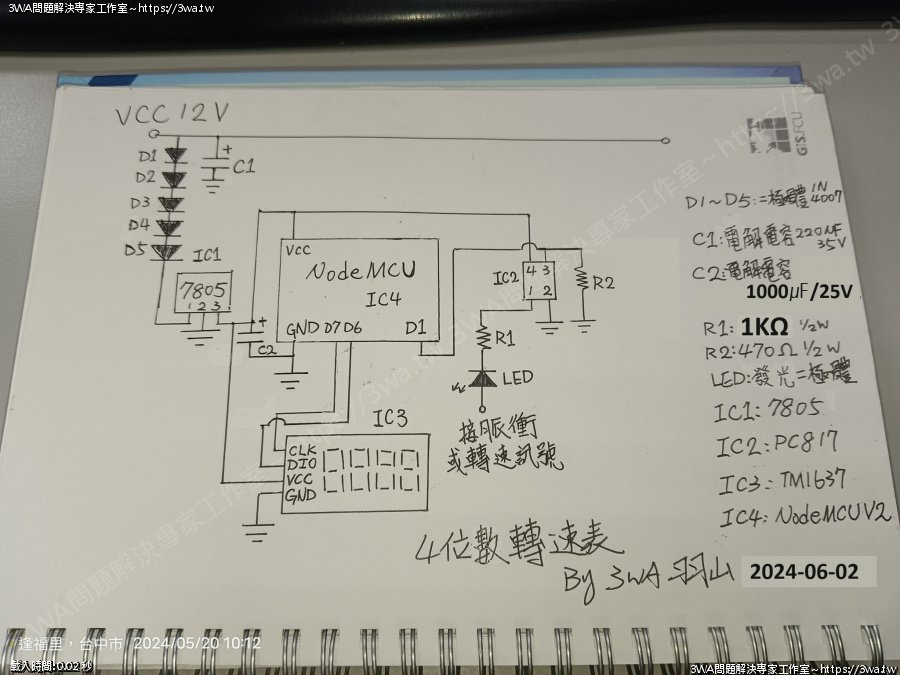 3WA問題解決專家工作室~https://3wa.tw
VCC 12V
GIS.FCU
D1
D2
D3
D4
D5
+
C1
IC1
7805
1 2 3
+
C2
VCC
NodeMCU
IC4
GND D7 D6 D1
IC2
4 3
1 2
R2
R1
LED
接脈衝
或轉速訊號
IC3
CLK
DIO
VCC
GND
D1~D5:二極體 1N4007
C1:電解電容 220uF 35V
C2:電解電容
1000μF/25V
R1: 1KΩ 1/2W
R2:470Ω 1/2W
LED:發光二極體
IC1: 7805
IC2:PC817
IC3: TM1637
IC4: NodeMCU V2
4位數轉速表
By 3WA 羽山 2024-06-02
逢福里,台中市 2024/05/20 10:12
載入時間:0.02 秒
3WA問題解決專家工作室~https://3wa.tw